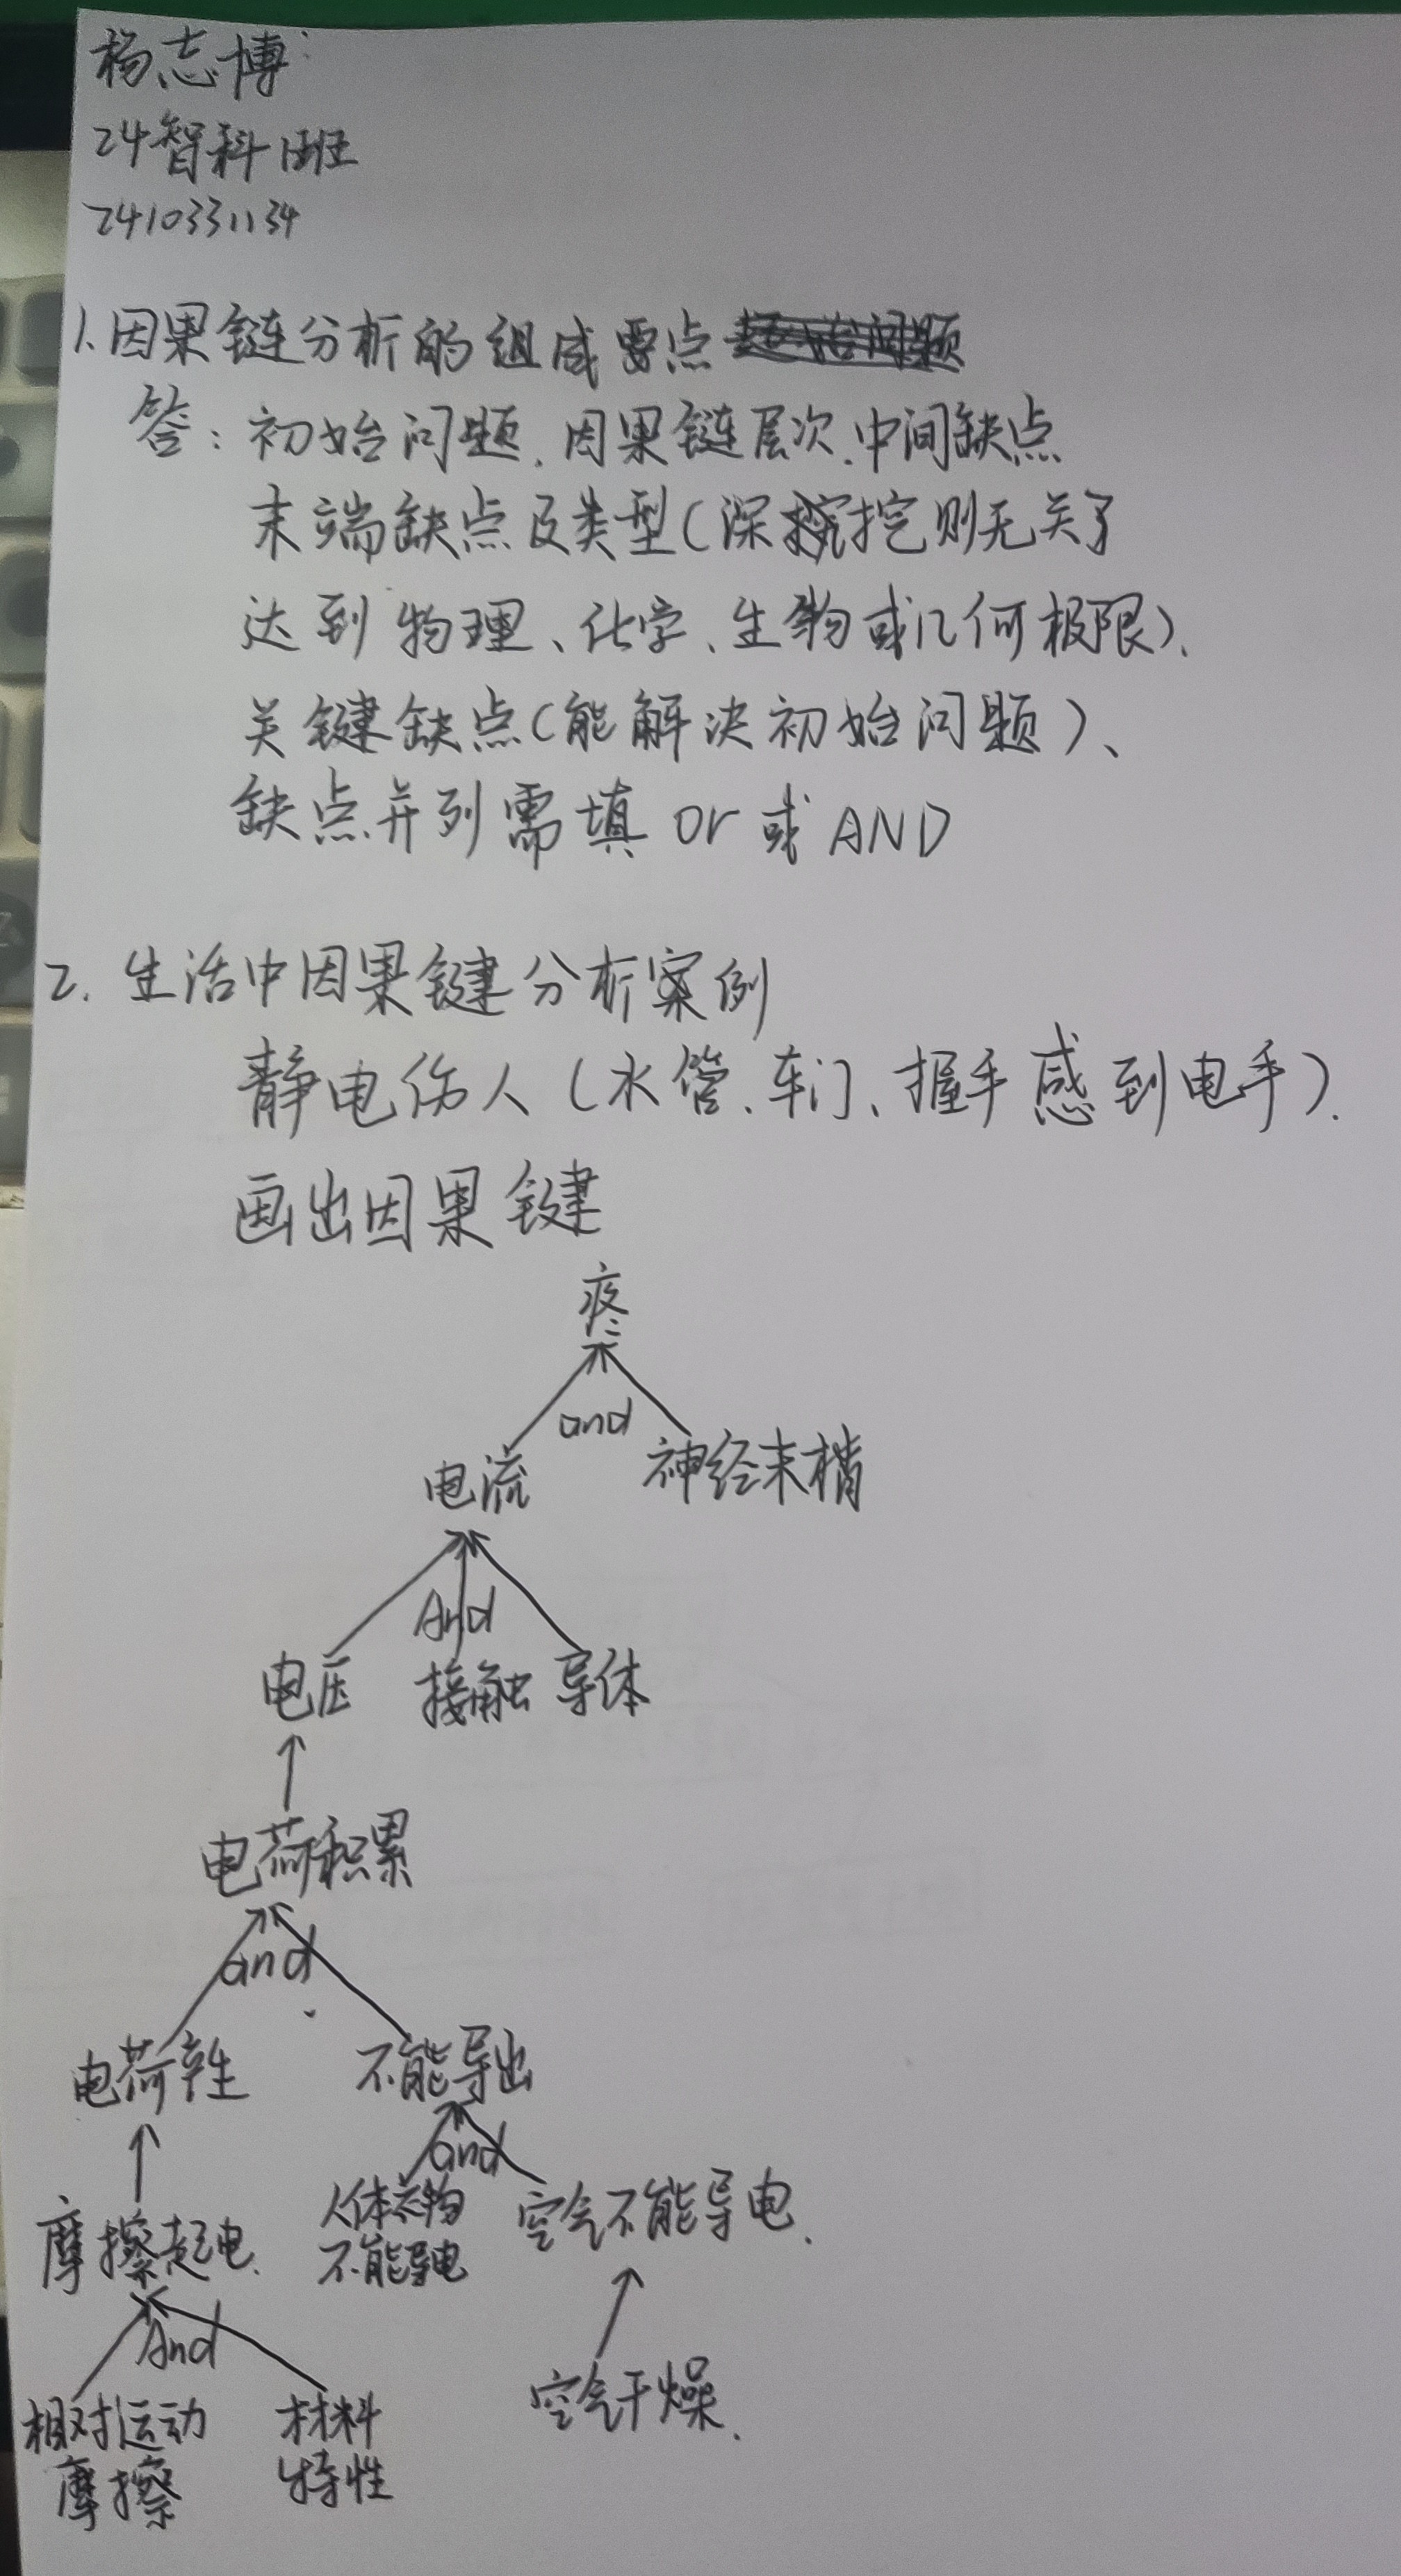 杨志博
24智科1班
2410331134
1.因果链分析的组成要点
答：初始问题、因果链层次、中间缺点
末端缺点及类型(深挖则无关了
达到物理、化学、生物或几何极限)、
关键缺点(能解决初始问题)、
缺点并列需填 or 或 AND
2. 生活中因果键分析案例
静电伤人(水管、车门、握手感到电手).
画出因果键
疼
and
电流 神经末梢
And
电压 接触 导体
电荷积累
and
电荷产生 不能导出
and
摩擦起电. 人体衣物 空气不能导电.
不能导电
And
相对运动 材料 空气干燥.
摩擦 特性